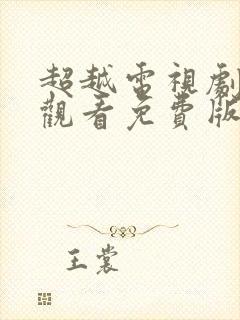 超越電視劇
觀看免費版
王裳